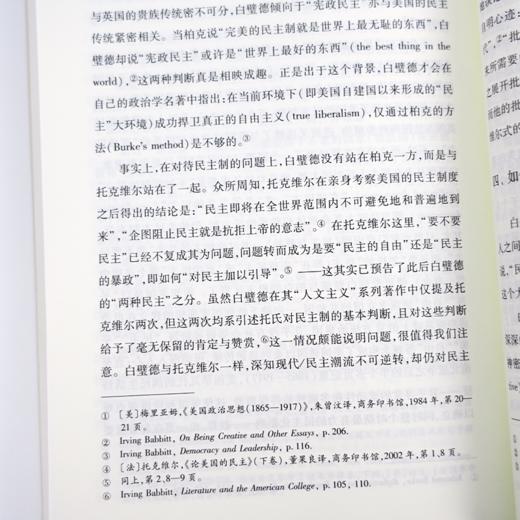 与英国的贵族传统密不可分，白璧德倾向于“宪政民主”亦与美国的民主
传统紧密相关。当柏克说“完美的民主制就是世界上最无耻的东西”，白
璧德却说“宪政民主”或许是“世界上最好的东西”(the best thing in the
world)，②这两种判断真是相映成趣。正是出于这个背景，白璧德才会在
自己的政治学名著中指出：在当前环境下（即美国自建国以来形成的“民
主”大环境）成功捍卫真正的自由主义(true liberalism)，仅通过柏克的方
法(Burke's method)是不够的。③
事实上，在对待民主制的问题上，白璧德没有站在柏克一方，而是与
托克维尔站在了一起。众所周知，托克维尔在亲身考察美国的民主制度
之后得出的结论是：“民主即将在全世界范围内不可避免地和普遍地到
来”，“企图阻止民主就是抗拒上帝的意志”。④ 在托克维尔这里，“要不要
民主”已经不复成其为问题，问题转而成为是要“民主的自由”还是“民主
的暴政”，即如何“对民主加以引导”。⑤ ——这其实已预告了此后白璧德
的“两种民主”之分。虽然白璧德在其“人文主义”系列著作中仅提及托
克维尔两次，但这两次均系引述托氏对民主制的基本判断，且对这些判断
给予了毫无保留的肯定与赞赏，⑥这一情况颇能说明问题，很值得我们注
意。白璧德与托克维尔一样，深知现代/民主潮流不可逆转，却仍对民主
① ［美］梅里亚姆，《美国政治思想(1865—1917)》，朱曾汶译，商务印书馆，1984 年，第 20—
21 页。
② Irving Babbitt, On Being Creative and Other Essays, p. 206.
③ Irving Babbitt, Democracy and Leadership, p. 116.
④ ［法］托克维尔，《论美国的民主》(下卷)，董果良译，商务印书馆，2002 年，第 1、8 页。
⑤ 同上，第 2、8—9 页。
⑥ Irving Babbitt, Literature and the American College, p. 105, 110.
自明心迹：
代”，②“批
来所需要
之展开批
而他的批
维尔式的
四、如
白
人之间
看
这个大
白
深深
神密